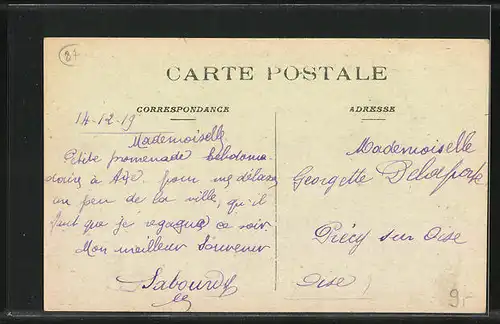 87
CARTE POSTALE
CORRESPONDANCE
ADRESSE
14-12-19
Mademoiselle
Petite promenade hebdoma-
daire à pour me délasser
un peu de la ville, qu'il
faut que je regagne ce soir.
Mon meilleur Souvenir
Sabourdy
Mademoiselle
Georgette Delaporte
Précy sur Oise
Oise